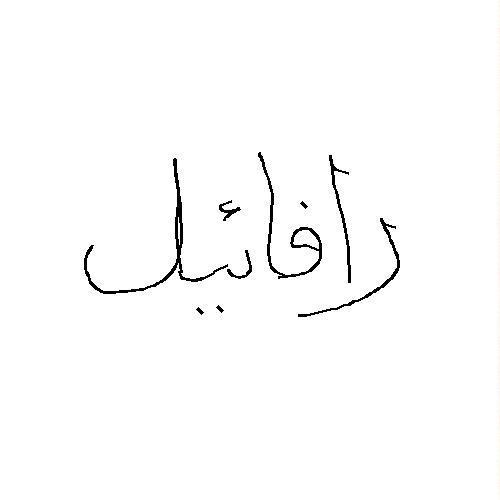 رافائيل